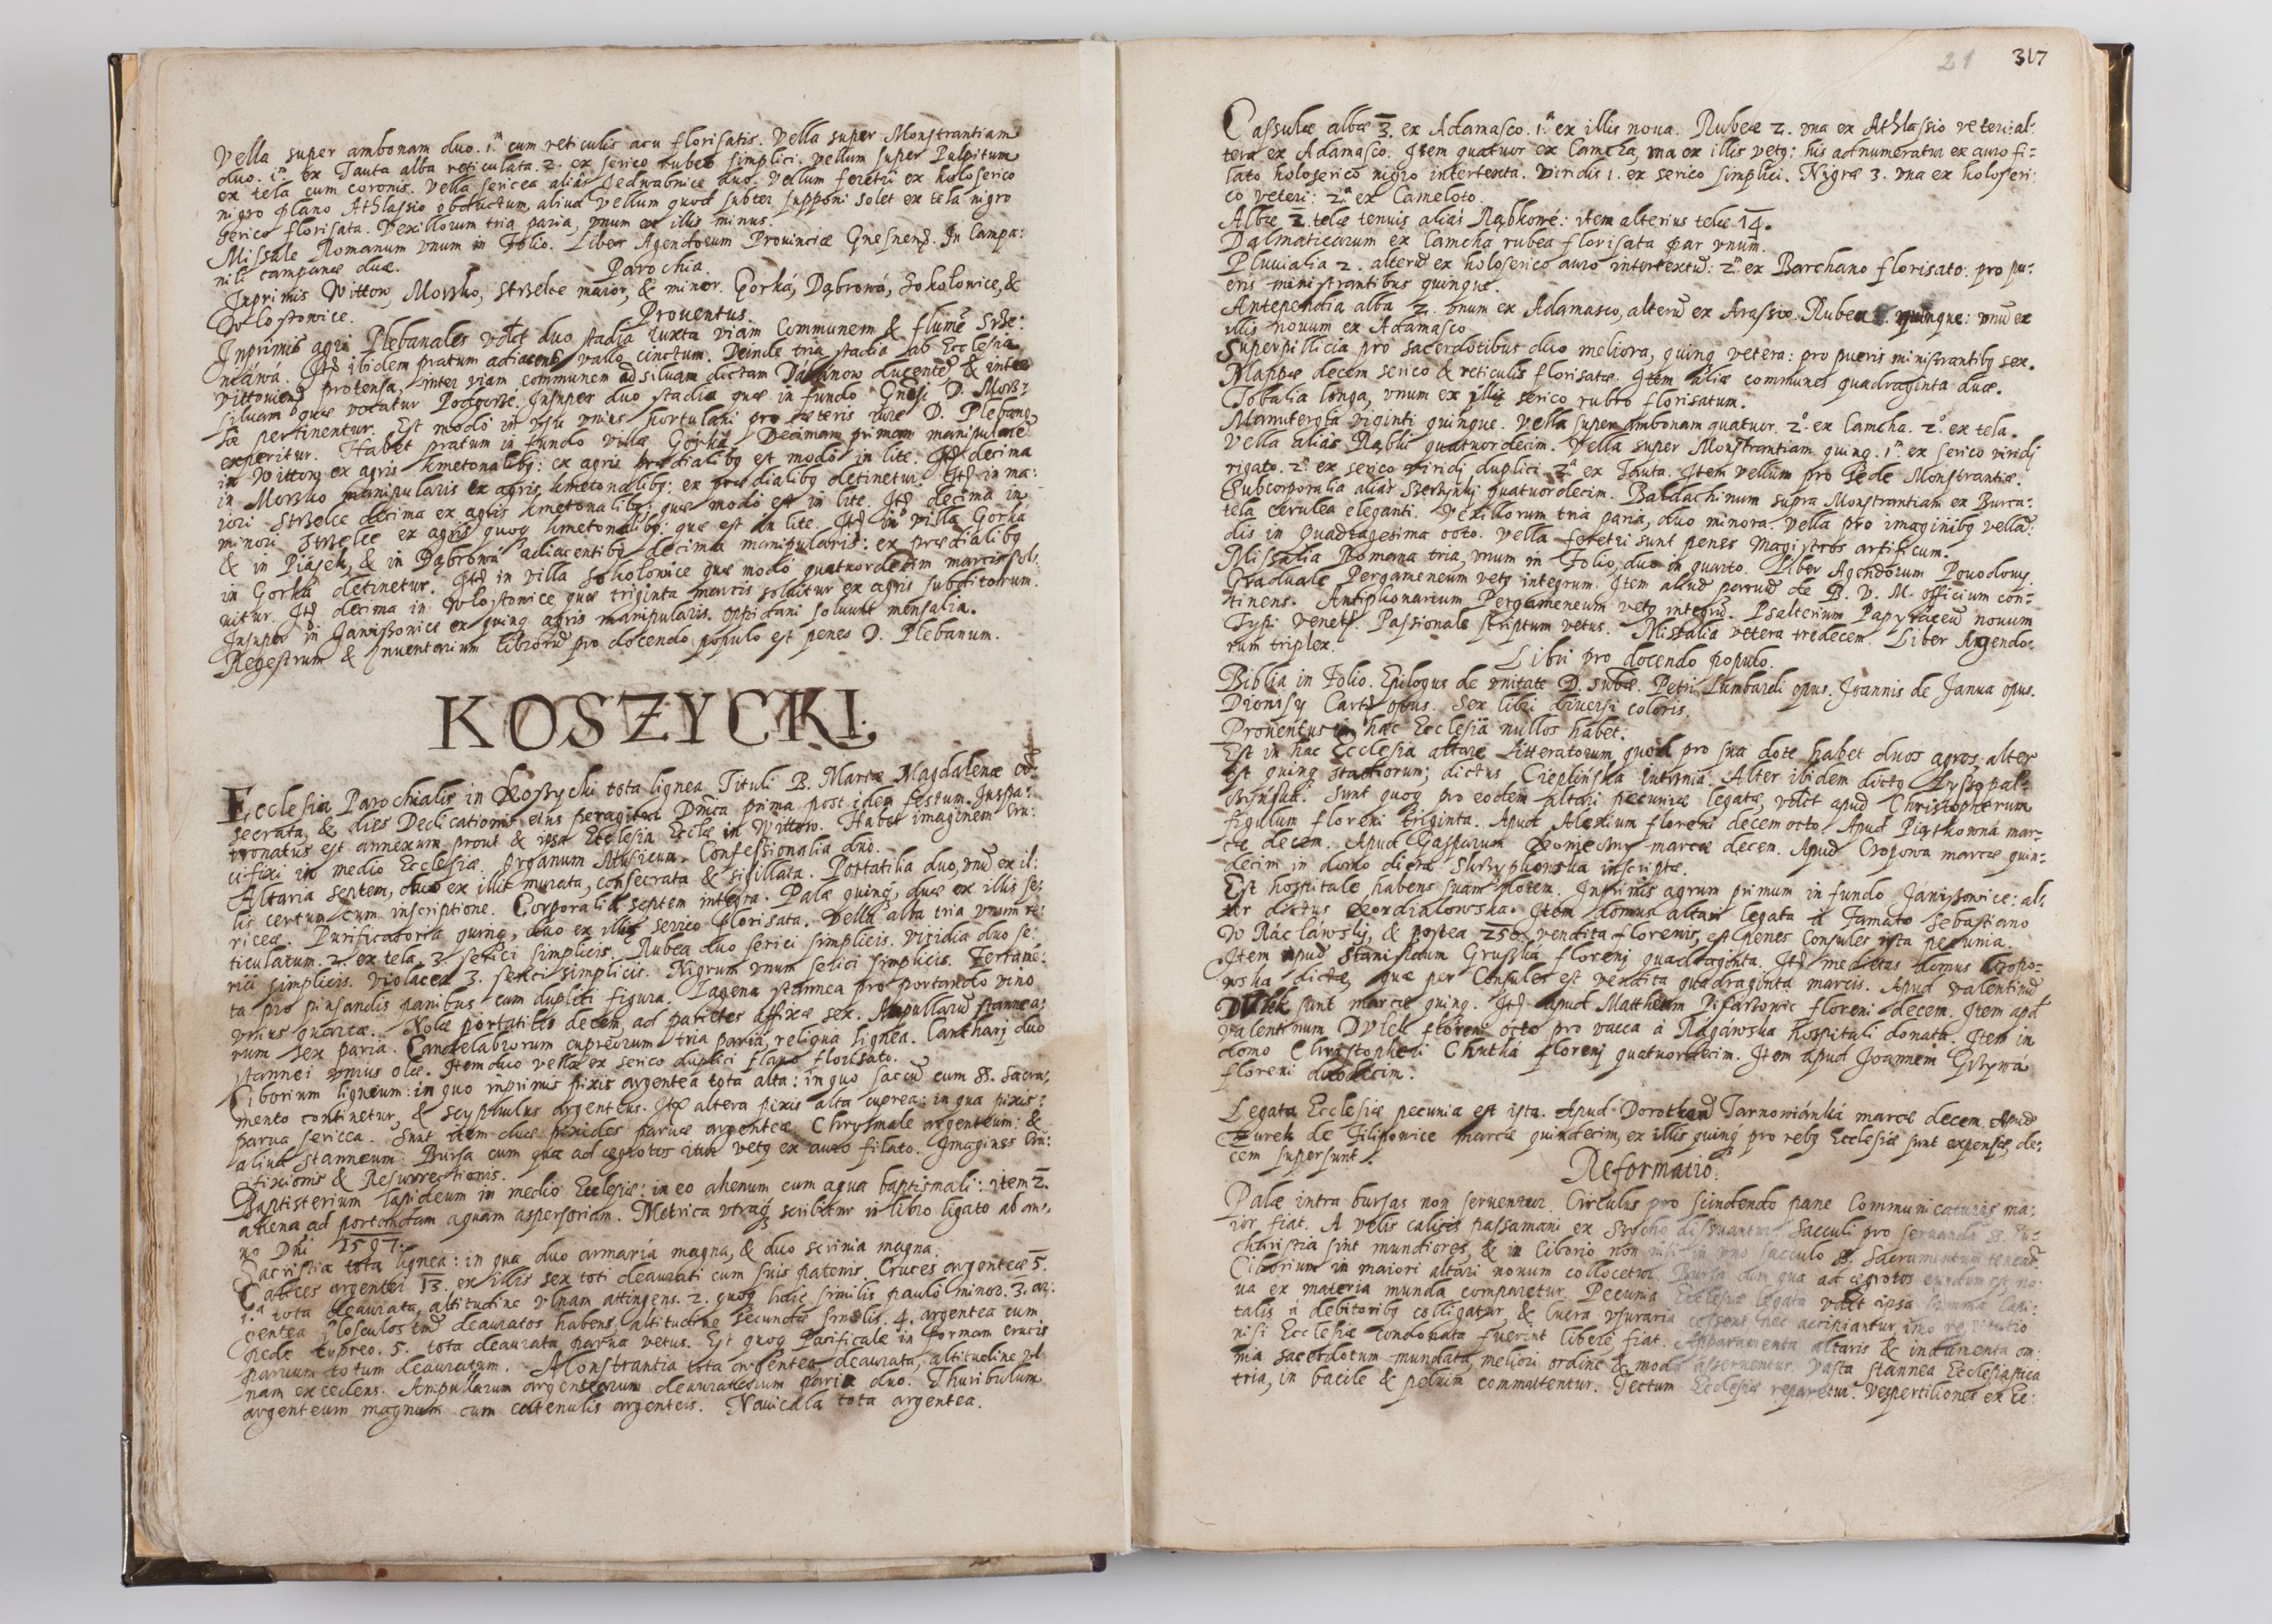 Vella super ambonam duo. 1.m cum reticulis acu florisatis. Vella super Monstrantiam
duo. 1m ex Tauta alba reticulata. 2. ex serico rubeo simplici. Vellum super Pulpitum
ex tela cum coronis. Vella sericea aliàs Jedwabnice duo. Vellum feretri ex holoserico
nigro plano Athlassio obductum, aliud Vellum quod subter supponi solet ex tela nigro
serico florisata. Vexillorum tria paria, vnum ex illis minus.
Missale Romanum vnum in Folio. Liber Agendorum Prouinciæ Gnesnens. In Campa:
nili campanæ duæ.
Parochia.
Inprimis Wittow, Morsko, Strzelce maior, & minor. Gorká, Dąbrowá, Sokolowice, &
Wlostowice.
Prouentus.
Inprimis agri Plebanales vdlt duo stadia iuxta viam Communem & flumē Srze:
niáwá. Itē ibidem pratum adiacens vallo cinctum. Deinde tria stadia ab Ecclesia
Vittouiens protensa, inter viam communem ad siluam dictam Dábrnow ducentē & inter
siluam quæ vocatur Podgorze. Insuper duo stadia quæ in fundo Gnosi D. Mors:
sæ pertinentur. Est modò in vsu vnius hortulani pro cæteris iure D. Plebang
experitur. Habet pratum in fundo villæ Górká. Decimam primam manipularē
in Wittow ex agris kmetonalibg: ex agris prædialibg est modò in lite. Itē decima
in Morsko manipularis ex agris kmetonalibg: ex prædialibg detinetur. Itē in ma:
iori Strzelce decima ex agris kmetonalibg: quæ modò est in lite. Itē decima in
minori Strzelce ex agris quoq kmetonalibg: quæ est in lite. Itē in villa Gorká
& in Piasek, & in Dąbrowá adiacentibg decima manipularis: ex prædialibg
in Gorká detinetur. Itē in villa Sokolowice quæ modò quatuordecim marcis sol:
uitur. Itē decima in Wlostowice quæ triginta marcis soluitur ex agris subditorum.
Insuper in Janissowice ex quinq agris manipularis. oppidani soluunt mensalia.
Regestrum & Inuentarium librorū pro docendo populo est penes D. Plebanum.
KOSZYCKI.
Ecclesia Parochialis in Koszycki tota lignea Tituli B. Mariæ Magdalenæ cō:
secrata, & dies Dedicationis eius peragitur Dnica prima post idem festum. Juspa:
tronatus est annexum prout & ipsa Ecclesia Ecclæ in Wittow. Habet imaginem Cru:
cifixi in medio Ecclesiæ. Organum Musicum. Confessionalia duo.
Altaria septem, duo ex illis murata, consecrata & sigillata. Portatilia duo, vnū ex il:
lis certum cum inscriptione. Corporalia septem integra. Palæ quinq, duæ ex illis se:
riceæ. Purificatoria quinq, duo ex illis serico florisata. Vella alba tria vnum re:
ticulatum. 2. ex tela. 3. serici simplicis. Rubea duo serici simplicis. Viridia duo se:
rici simplicis. Violacea 3. serici simplicis. Nigrum vnum serici simplicis. Ferramē:
ta pro pinsandis panibus cum duplici figura. Lagena stannea pro portando vino
vnius quartæ. Nolæ portatiles decem, ad parietes affixæ sex. Ampullarū stannea:
rum sex paria. Candelabrorum cupreorum tria paria, reliqua lignea. Cantharj duo
stannei vnius olæ. Item duo vella ex serico duplici flauo florisato.
Ciborium ligneum: in quo inprimis pixis argentea tota alta: in quo saccū cum SS. Sacra:
mento continetur, & scyphulus argenteus. Itē altera pixis alta cuprea: in qua pixis:
parua sericea. Sunt item duæ pixides paruæ argenteæ. Chrysmale argenteum: &
aliud stanneum. Bursa cum qua ad ægrotos itur vetg ex auro filato. Imagines Cru:
cifixionis & Resurrectionis.
Baptisterium lapideum in medio Ecclesiæ: in eo ahenum cum aqua baptismali: item 2.
ahena ad portandam aquam aspersoriam. Metrica vtraq scribitur in libro ligato ab an:
no Dni 1597.
Sacristia tota lignea: in qua duo armaria magna, & duo scrinia magna.
Calices argentei 13. ex illis sex toti deaurati cum suis patenis. Cruces argenteæ 5.
1.a tota deaurata, altitudine vlnam attingens. 2. quoq huic similis paulò minor. 3. ar:
gentea flosculos tm̄ deauratos habens, altitudine secundæ similis. 4. argentea cum
pede cupreo. 5. tota deaurata parua vetus. Est quoq Pacificale in formam crucis
paruum totum deauratum. Monstrantia tota argentea deaurata, altitudine vl
nam excedens. Ampullarum argentearum deauratarum paria duo. Thuribulum
argenteum magnum cum catenulis argenteis. Nauicula tota argentea.
21 317
Cassulæ albæ 3. ex Adamasco. 1.a ex illis noua. Rubeæ 2. vna ex Athlassio veteri: al:
tera ex Adamasco. Item quatuor ex Camcha, vna ex illis vetg: his adnumeratur ex auro fi:
lato holoserico nigro intertexta. Viridis 1. ex serico simplici. Nigræ 3. vna ex holoseri:
co veteri: 2.a ex Cameloto.
Albæ 2. telæ tenuis aliàs Rąbkowé: item alterius telæ 14.
Dalmaticarum ex Camcha rubea florisata par vnum.
Pluuialia 2. alterū ex holoserico auro intertextū: 2.m ex Barchano florisato. pro pu:
eris ministrantibus quinque.
Antependia alba 2. vnum ex Adamasco, alterū ex Arassio. Rubea quinque: vnū ex
illis nouum ex Adamasco.
Superpillicia pro sacerdotibus duo meliora, quinq vetera: pro pueris ministrantibg sex.
Mappæ decem serico & reticulis florisatæ. Item aliæ communes quadraginta duæ.
Tobalia longa, vnum ex illis serico rubro florisatum.
Manutergia viginti quinque. Vella super ambonam quatuor. 2.o ex Camcha. 2.o ex tela.
Vella aliàs Rąbki quatuordecim. Vella super Monstrantiam quinq. 1.m ex serico viridj
rigato. 2.m ex serico viridj duplici. 2.a ex Tauta. Item vellum pro Pede Monstrantiæ.
Subcorporalia aliàs Szerzynki quatuordecim. Baldachinum supra Monstrantiam ex Burca:
tela cerulea eleganti. Vexillorum tria paria, duo minora. Vella pro imaginibg vellā:
dis in Quadragesima octo. Vella feretri sunt penes Magistros artificum.
Missalia Romana tria, vnum in Folio, duo in quarto. Liber Agendorum Pouodouy.
Graduale Pergameneum vetg integrum. Item aliud paruū de B. V. M. officium con:
tinens. Antiphonarium Pergameneum vetg integrū. Psalterium Papyraceū nouum
Typi Venets. Passionale scriptum vetus. Missalia vetera tredecem. Liber Angendo:
rum triplex.
Libri pro docendo populo.
Biblia in Folio. Epilogus de vnitate D. subæ. Petri Lumbardi opus. Joannis de Janua opus.
Dionisy Carts opus. Sex libri diuersi coloris.
Prouentus in hac Ecclesia nullos habet.
Est in hac Ecclesia altare Litteratorum, quod pro sua dote habet duos agros. alter
est quinq stadiorum; dictus Cieplińska Alter ibidem dictg
Sunt quoq pro eodem altari pecuniæ legatæ, vdlt apud Christopherum
figulum floreni triginta. Apud Alexium floreni decem octo. Apud Piątkowná mar:
cæ decem. Apud Gasparum Koniecny marcæ decem. Apud Cropowa marcæ quin:
decim in domo dicta Skrzyphowska inscriptæ.
Est hospitale habens suam dotem. Inprimis agrum primum in fundo Jánissowice: al:
ter dictus Kordialowska. Item domus altari legata à Famato Sebastiano
W Rácláwskj, & postea 250. vendita florenis, est penes Consules ista pecunia.
Item apud Stanislaum Gruszká florenj quadraginta. Itē medietas domus Cropo:
wska dictæ, quæ per Consules est vendita quadraginta marcis. Apud Valentinū
Dulek sunt marcæ quinq. Itē apud Matthæum Pisarzowic floreni decem. Item apd
Valentinum Dulek floreni octo pro vacca à Rágawska hospitali donata. Item in
domo Christopheri Chutká florenj quatuordecim. Item apud Joannem Grzywá
floreni duodecim.
Legata Ecclesiæ pecunia est ista. Apud Dorotheā Tarnowiánká marcæ decem. Apud
Żurek de Filipowice marcæ quindecim, ex illis quinq pro rebg Ecclesiæ sunt expensæ, de:
cem supersunt.
Reformatio.
Palæ intra bursas non seruentur. Circulus pro scindendo pane Communicaturis ma:
ior fiat. A velis calicis passamani ex Srocho dissuantur. Sacculi pro seruanda S. Eu:
charistia sint mundiores, & in Ciborio non nisi in vno sacculo SS. Sacramentum teneat.
Ciborium in maiori altari nouum collocetur. Bursa cum qua ad ægrotos eundum est no:
ua ex materia munda comparetur. Pecunia Ecclesiæ legata vdlt ipsa summa Capi:
talis à debitoribg colligatur, & lucra vsuraria cessent nec accipiantur imò restitutio
nisi Ecclesiæ condonata fuerint liberè, fiat. Apparamenta altaris & indumenta om:
nia sacerdotum mundata, meliori ordine & modo asseruentur. Vasta stannea Ecclesiastica
tria, in bacile & peluim commutentur. Tectum Ecclesiæ reparetur. Vespertiliones ex Ec: